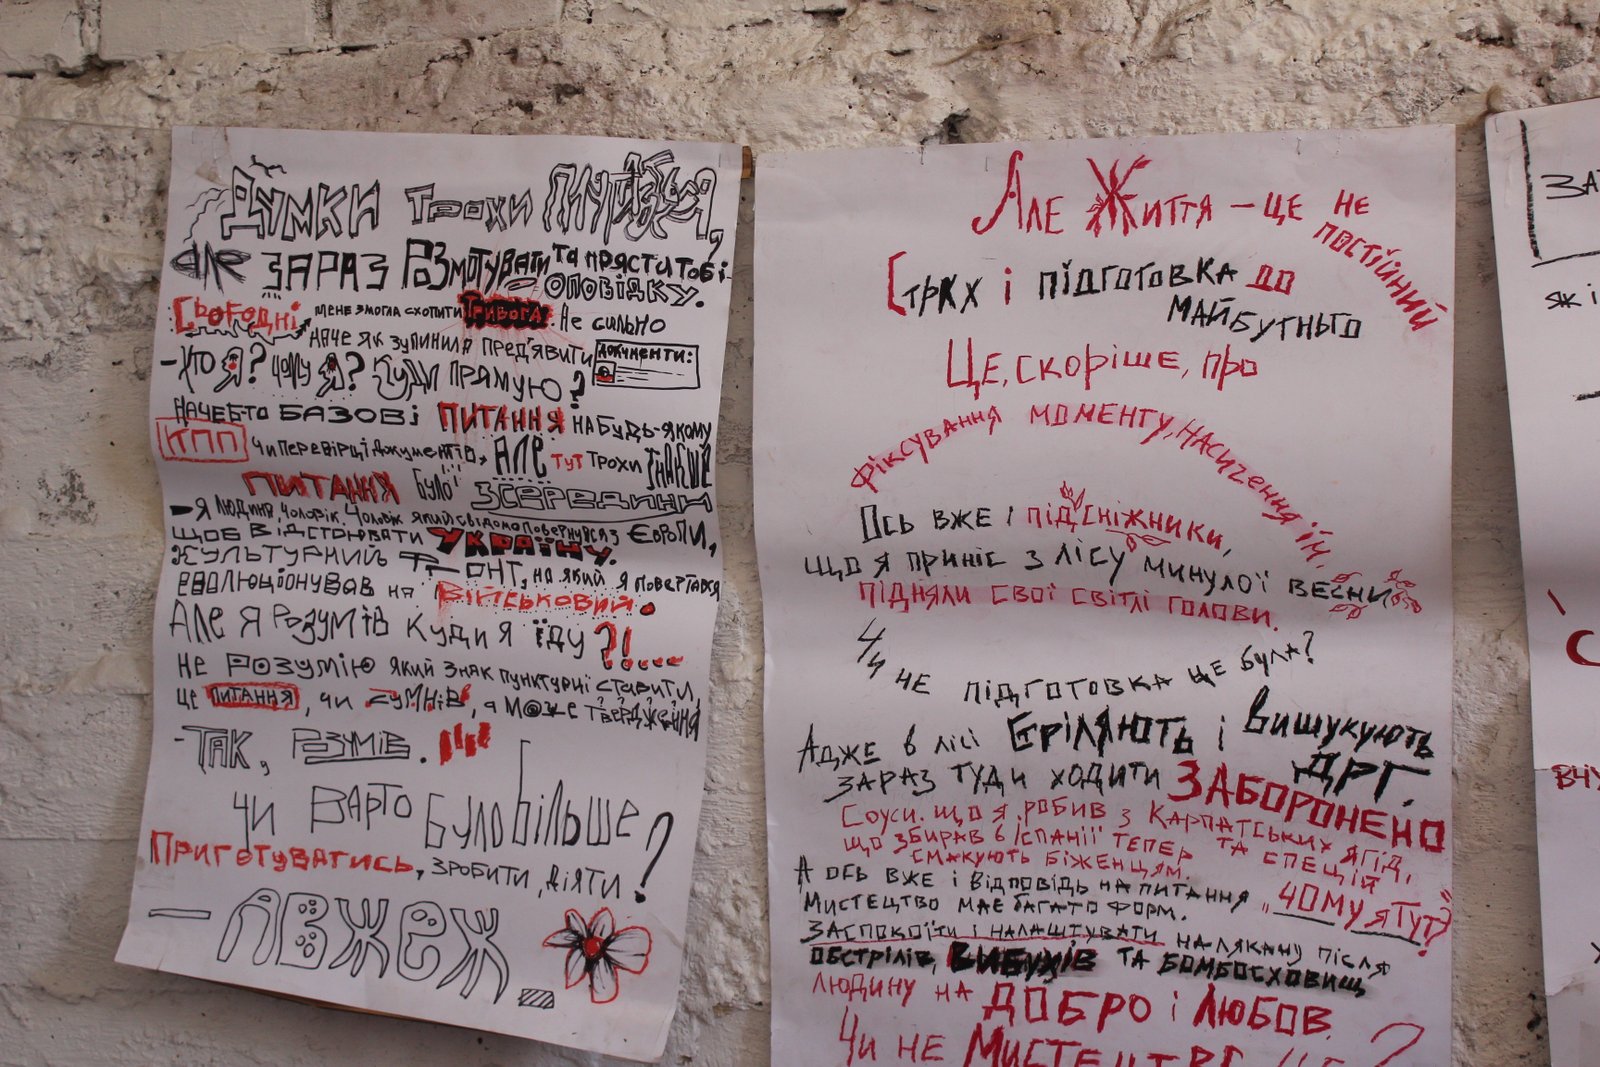 ДУМКИ ТРОХИ
АЛЕ ЗАРАЗ РОЗМОТУВАТИ ТА ПРЯСТИ ТОБІ
ОПОВІДКУ.
СЬОГОДНІ МЕНЕ ЗМОГЛА СХОПИТИ ТРИВОГА. НЕ СИЛЬНО
НАЧЕ ЯК ЗУПИНИЛА ПРЕД'ЯВИТИ ДОКУМЕНТИ:
- ХТО Я? ЧОМУ Я? КУДИ ПРЯМУЮ?
НАЧЕБ-ТО БАЗОВІ ПИТАННЯ НА БУДЬ-ЯКОМУ
КПП ЧИ ПЕРЕВІРЦІ ДОКУМЕНТІВ, АЛЕ ТУТ ТРОХИ ІНАКШЕ
ПИТАННЯ БУЛО ЗСЕРЕДИНИ
- Я ЛЮДИНА, ЧОЛОВІК. ЧОЛОВІК ЯКИЙ СВІДОМО ПОВЕРНУВСЯ З ЄВРОПИ,
ЩОБ ВІДСТОЮВАТИ УКРАЇНУ.
КУЛЬТУРНИЙ ФРОНТ, НА ЯКИЙ Я ПОВЕРТАВСЯ
ЕВОЛЮЦІОНУВАВ НА ВІЙСЬКОВИЙ.
АЛЕ Я РОЗУМІВ КУДИ Я ЇДУ ?!....
НЕ РОЗУМІЮ ЯКИЙ ЗНАК ПУНКТУАЦІЇ СТАВИТИ,
ЦЕ ПИТАННЯ, ЧИ СУМНІВ, А МОЖЕ ТВЕРДЖЕННЯ
- ТАК, РОЗУМІВ. !!!
ЧИ ВАРТО БУЛО БІЛЬШЕ
ПРИГОТУВАТИСЬ, ЗРОБИТИ, ДІЯТИ?
- АВЖЕЖ.
АЛЕ ЖИТТЯ - ЦЕ НЕ ПОСТІЙНИЙ
СТРАХ І ПІДГОТОВКА ДО
МАЙБУТНЬГО
ЦЕ, СКОРІШЕ, ПРО
ФІКСУВАННЯ МОМЕНТУ, НАСИЧЕННЯ ЇМ.
ОСЬ ВЖЕ І ПІДСНІЖНИКИ,
ЩО Я ПРИНІС З ЛІСУ МИНУЛОЇ ВЕСНИ
ПІДНЯЛИ СВОЇ СВІТЛІ ГОЛОВИ.
ЧИ НЕ ПІДГОТОВКА ЦЕ БУЛА?
АДЖЕ В ЛІСІ СТРІЛЯЮТЬ І ВИШУКУЮТЬ
ДРГ.
ЗАРАЗ ТУДИ ХОДИТИ ЗАБОРОНЕНО
СОУСИ, ЩО Я РОБИВ З КАРПАТСЬКИХ ЯГІД,
ТА СПЕЦІЙ
ЩО ЗБИРАВ В ІСПАНІЇ ТЕПЕР
СМАКУЮТЬ БІЖЕНЦЯМ.
А ОСЬ ВЖЕ І ВІДПОВІДЬ НА ПИТАННЯ „ЧОМУ Я ТУТ?"
МИСТЕЦТВО МАЄ БАГАТО ФОРМ.
ЗАСПОКОЇТИ І НАЛАШТУВАТИ НАЛЯКАНУ ПІСЛЯ
ОБСТРІЛІВ, ВИБУХІВ ТА БОМБОСХОВИЩ
ЛЮДИНУ НА ДОБРО І ЛЮБОВ.
ЧИ НЕ МИСТЕЦТВО ЦЕ?
ЯК І